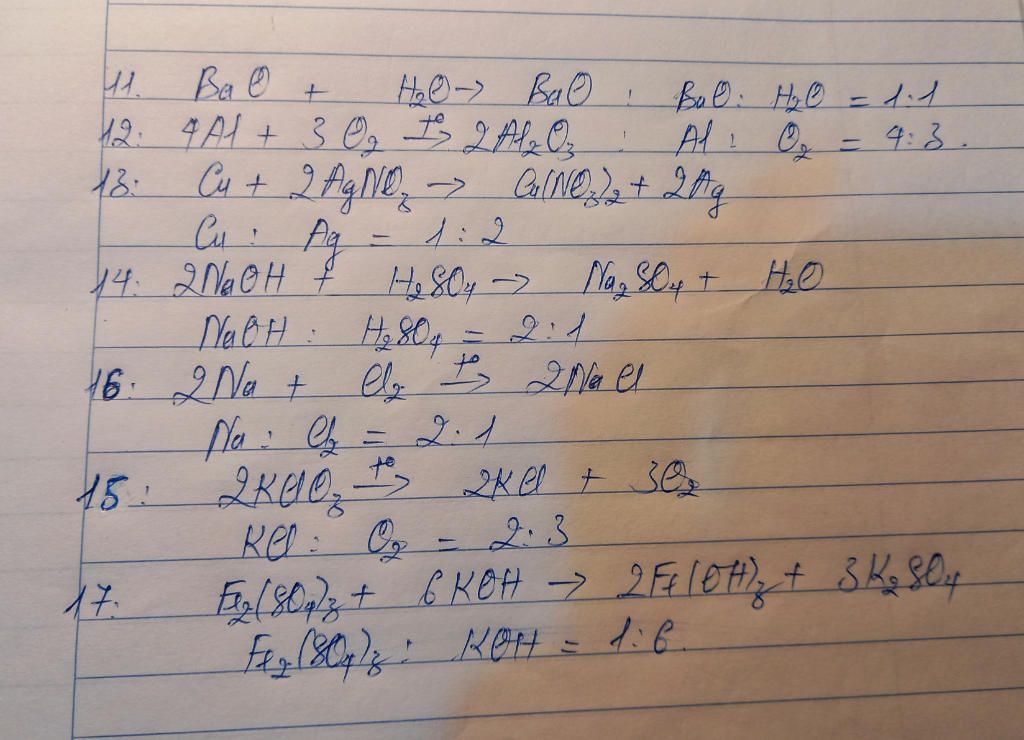 11. BaO + H₂O → BaO : BaO : H₂O = 1:1
12: 4Al + 3O₂ t°→ 2Al₂O₃ : Al : O₂ = 4:3.
13: Cu + 2AgNO₃ → Cu(NO₃)₂ + 2Ag
Cu : Ag = 1:2
14: 2NaOH + H₂SO₄ → Na₂SO₄ + H₂O
NaOH : H₂SO₄ = 2:1
16: 2Na + Cl₂ t°→ 2NaCl
Na : Cl₂ = 2:1
15: 2KClO₃ t°→ 2KCl + 3O₂
KCl : O₂ = 2:3
17. Fe₂(SO₄)₃ + 6KOH → 2Fe(OH)₃ + 3K₂SO₄
Fe₂(SO₄)₃ : KOH = 1:6.